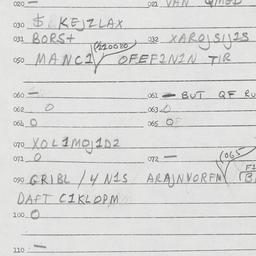 020 — 021 VAN
030 $ KEJZLAX
031 BORST 032 XAROJSIJ1S
050 MANC1 OFEF1N1N TIR
060 — 061 — BUT QF RU
062 O 063 O
064 O 065 O
070 XOL1MOJ1D2
071 O 072 — (065
090 GRIBL / 4 N1S ARAJNVORFM
DAFT C1KLOPM
100 O
110 —